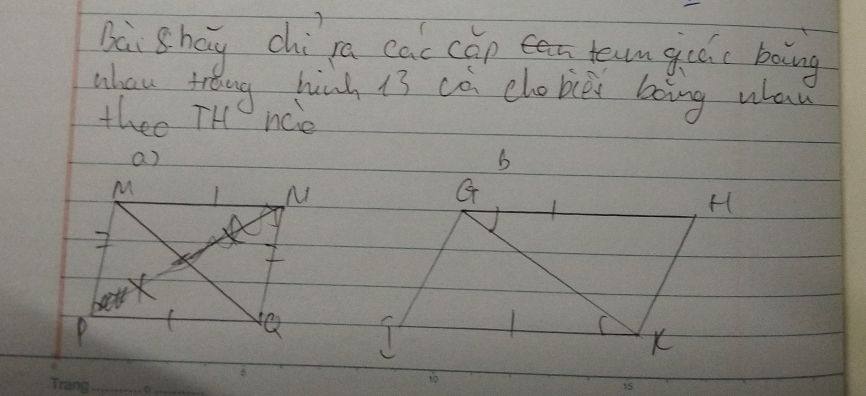 Bài 8: hãy chỉ ra các cặp tam giác bằng
nhau trong hình 13 và cho biết bằng nhau
theo TH nào
a) b
M N G H
P Q J K
5 10 15
Trang